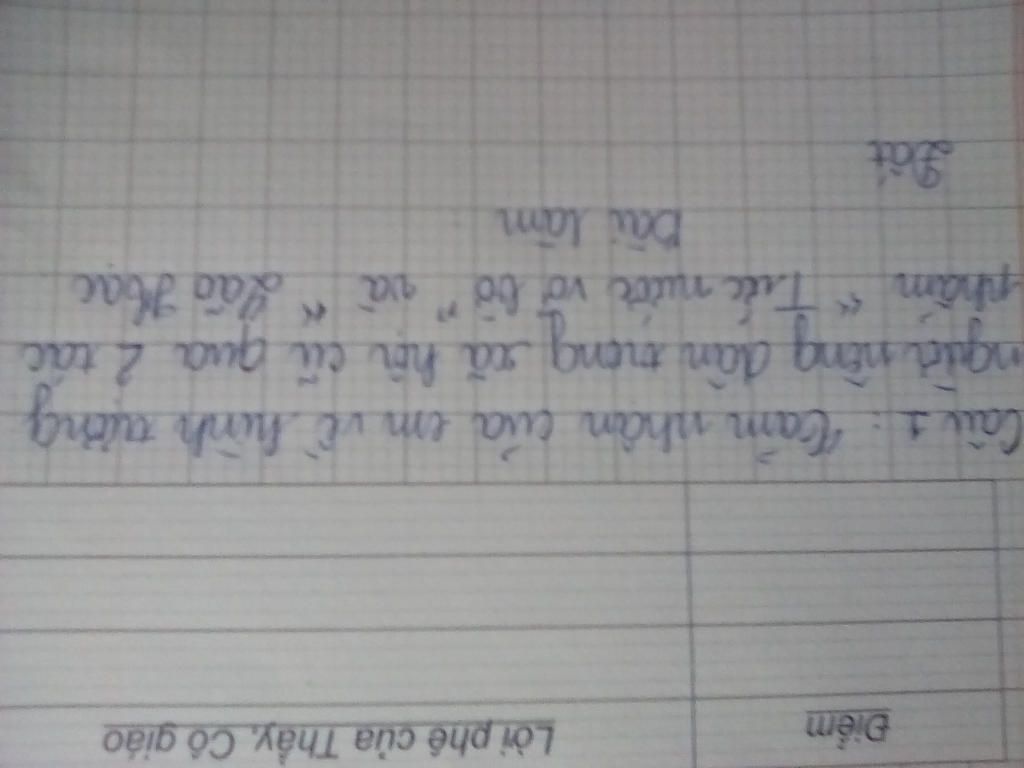 Điểm Lời phê của Thầy, Cô giáo
Câu 1: Cảm nhận của em về hình tượng
người nông dân trong xã hội cũ qua 2 tác
phẩm "Tức nước vỡ bờ" và "Lão Hạc
Bài làm
Đất